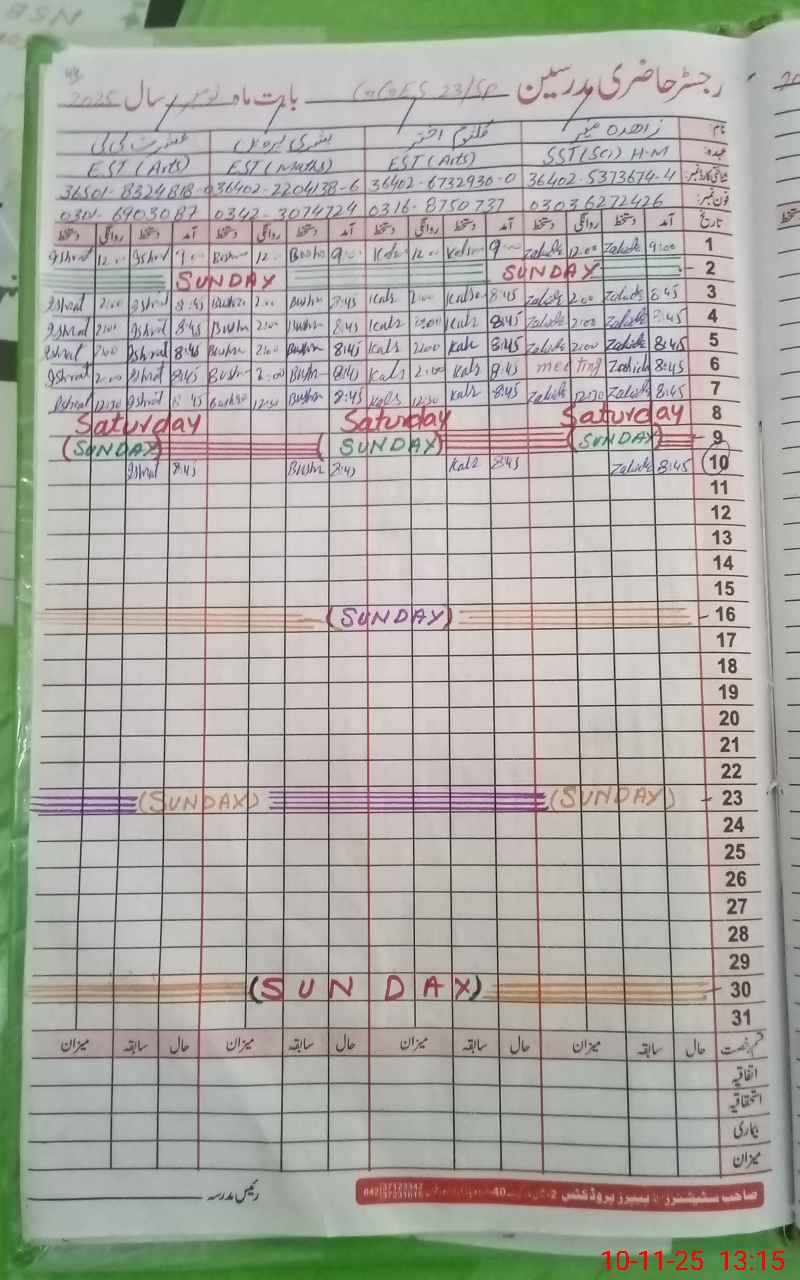 رجسٹر حاضری مدرسین GGES 23/SP بابت ماہ نومبر سال 2025
نام: زاھدہ منیر کلثوم اختر بشریٰ پروین عشرت بی بی
عہدہ: SST (Sci) H-M EST (Arts) EST (Maths) EST (Arts)
شناختی کارڈ نمبر: 36402-5373674-4 36402-6732930-0 36402-2204138-6 36501-8324818-0
فون نمبر: 03036272426 0316-8750737 0342-3074724 0301-6903087
تاریخ آمد دستخط روانگی دستخط آمد دستخط روانگی دستخط آمد دستخط روانگی دستخط آمد دستخط روانگی دستخط
1 9:00 Zahida 12:00 Zahida 9:00 Kals 12:00 Kals 9:00 Bushra 12:00 Bushra 9:00 Ishrat 12:00 Ishrat
2 SUNDAY SUNDAY
3 8:45 Zahida 2:00 Zahida 8:45 Kals 2:00 Kals 8:45 Bushra 2:00 Bushra 8:45 Ishrat 2:00 Ishrat
4 8:45 Zahida 2:00 Zahida 8:45 Kals 2:00 Kals 8:45 Bushra 2:00 Bushra 8:45 Ishrat 2:00 Ishrat
5 8:45 Zahida 2:00 Zahida 8:45 Kals 2:00 Kals 8:45 Bushra 2:00 Bushra 8:45 Ishrat 2:00 Ishrat
6 8:45 Zahida meeting 8:45 Kals 2:00 Kals 8:45 Bushra 2:00 Bushra 8:45 Ishrat 2:00 Ishrat
7 8:45 Zahida 12:30 Zahida 8:45 Kals 12:30 Kals 8:45 Bushra 12:30 Bushra 8:45 Ishrat 12:30 Ishrat
8 Saturday Saturday Saturday
9 (SUNDAY) (SUNDAY) (SUNDAY)
10 8:45 Zahida 8:45 Kals 8:45 Bushra 8:45 Ishrat
11
12
13
14
15
16 (SUNDAY)
17
18
19
20
21
22
23 (SUNDAY) (SUNDAY)
24
25
26
27
28
29
30 (SUNDAY)
31
قسم رخصت حال سابقہ میزان حال سابقہ میزان حال سابقہ میزان حال سابقہ میزان
اتفاقیہ
استحقاقیہ
بیماری
میزان
رئیس مدرسہ
صاحب سٹیشنرز پیپرز پروڈکٹس
10-11-25 13:15